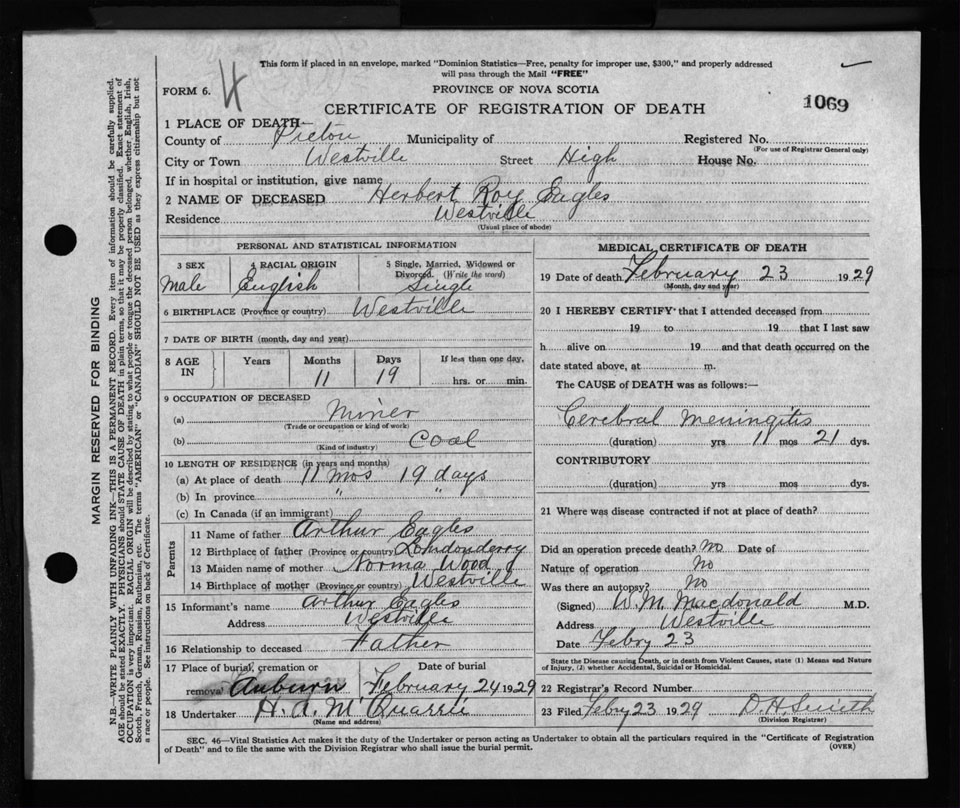 This form if placed in an envelope, marked "Dominion Statistics—Free, penalty for improper use, $300," and properly addressed
will pass through the Mail "FREE"
FORM 6. 4 PROVINCE OF NOVA SCOTIA
CERTIFICATE OF REGISTRATION OF DEATH 1069
1 PLACE OF DEATH
County of Pictou Municipality of Registered No.
(For use of Registrar General only)
City or Town Westville Street High House No.
If in hospital or institution, give name
2 NAME OF DECEASED Herbert Roy Eagles
Residence Westville
(Usual place of abode)
PERSONAL AND STATISTICAL INFORMATION
3 SEX 4 RACIAL ORIGIN 5 Single, Married, Widowed or
Divorced. (Write the word)
Male English Single
6 BIRTHPLACE (Province or country) Westville
7 DATE OF BIRTH (month, day and year)
8 AGE IN Years Months Days If less than one day,
11 19 hrs. or min.
9 OCCUPATION OF DECEASED
(a) Miner
(Trade or occupation or kind of work)
(b) Coal
(Kind of industry)
10 LENGTH OF RESIDENCE (in years and months)
(a) At place of death 11 mos 19 days
(b) In province " "
(c) In Canada (if an immigrant)
Parents
11 Name of father Arthur Eagles
12 Birthplace of father (Province or country) Londonderry
13 Maiden name of mother Norma Wood
14 Birthplace of mother (Province or country) Westville
15 Informant's name Arthur Eagles
Address Westville
16 Relationship to deceased Father
17 Place of burial, cremation or Date of burial
removal Auburn February 24 1929
18 Undertaker H. A. McQuarrie
(Name and address)
MEDICAL CERTIFICATE OF DEATH
19 Date of death February 23 1929
(Month, day and year)
20 I HEREBY CERTIFY that I attended deceased from
19 to 19 that I last saw
h alive on 19 and that death occurred on the
date stated above, at m.
The CAUSE of DEATH was as follows:—
Cerebral Meningitis
(duration) yrs 11 mos 21 dys.
CONTRIBUTORY
(duration) yrs. mos dys.
21 Where was disease contracted if not at place of death?
Did an operation precede death? No Date of
Nature of operation No
Was there an autopsy? No
(Signed) W. M. Macdonald M.D.
Address Westville
Date Febry 23
State the Disease causing Death, or in death from Violent Causes, state (1) Means and Nature
of Injury, (2) whether Accidental, Suicidal or Homicidal.
22 Registrar's Record Number
23 Filed Febry 23 1929 D. H. Smith
(Division Registrar)
SEC. 46—Vital Statistics Act makes it the duty of the Undertaker or person acting as Undertaker to obtain all the particulars required in the "Certificate of Registration
of Death" and to file the same with the Division Registrar who shall issue the burial permit. (OVER)
MARGIN RESERVED FOR BINDING
N.B.—WRITE PLAINLY WITH UNFADING INK—THIS IS A PERMANENT RECORD. Every item of information should be carefully supplied.
AGE should be stated EXACTLY. PHYSICIANS should STATE CAUSE OF DEATH in plain terms, so that it may be properly classified. Exact statement of
OCCUPATION is very important. RACIAL ORIGIN will be described by stating to what people or tongue the deceased person belonged, whether English, Irish,
Scotch, French, German, Russian, Ruthenian, etc. The terms "AMERICAN" or "CANADIAN" SHOULD NOT BE USED as they express citizenship but not
a race or people. See instructions on back of Certificate.